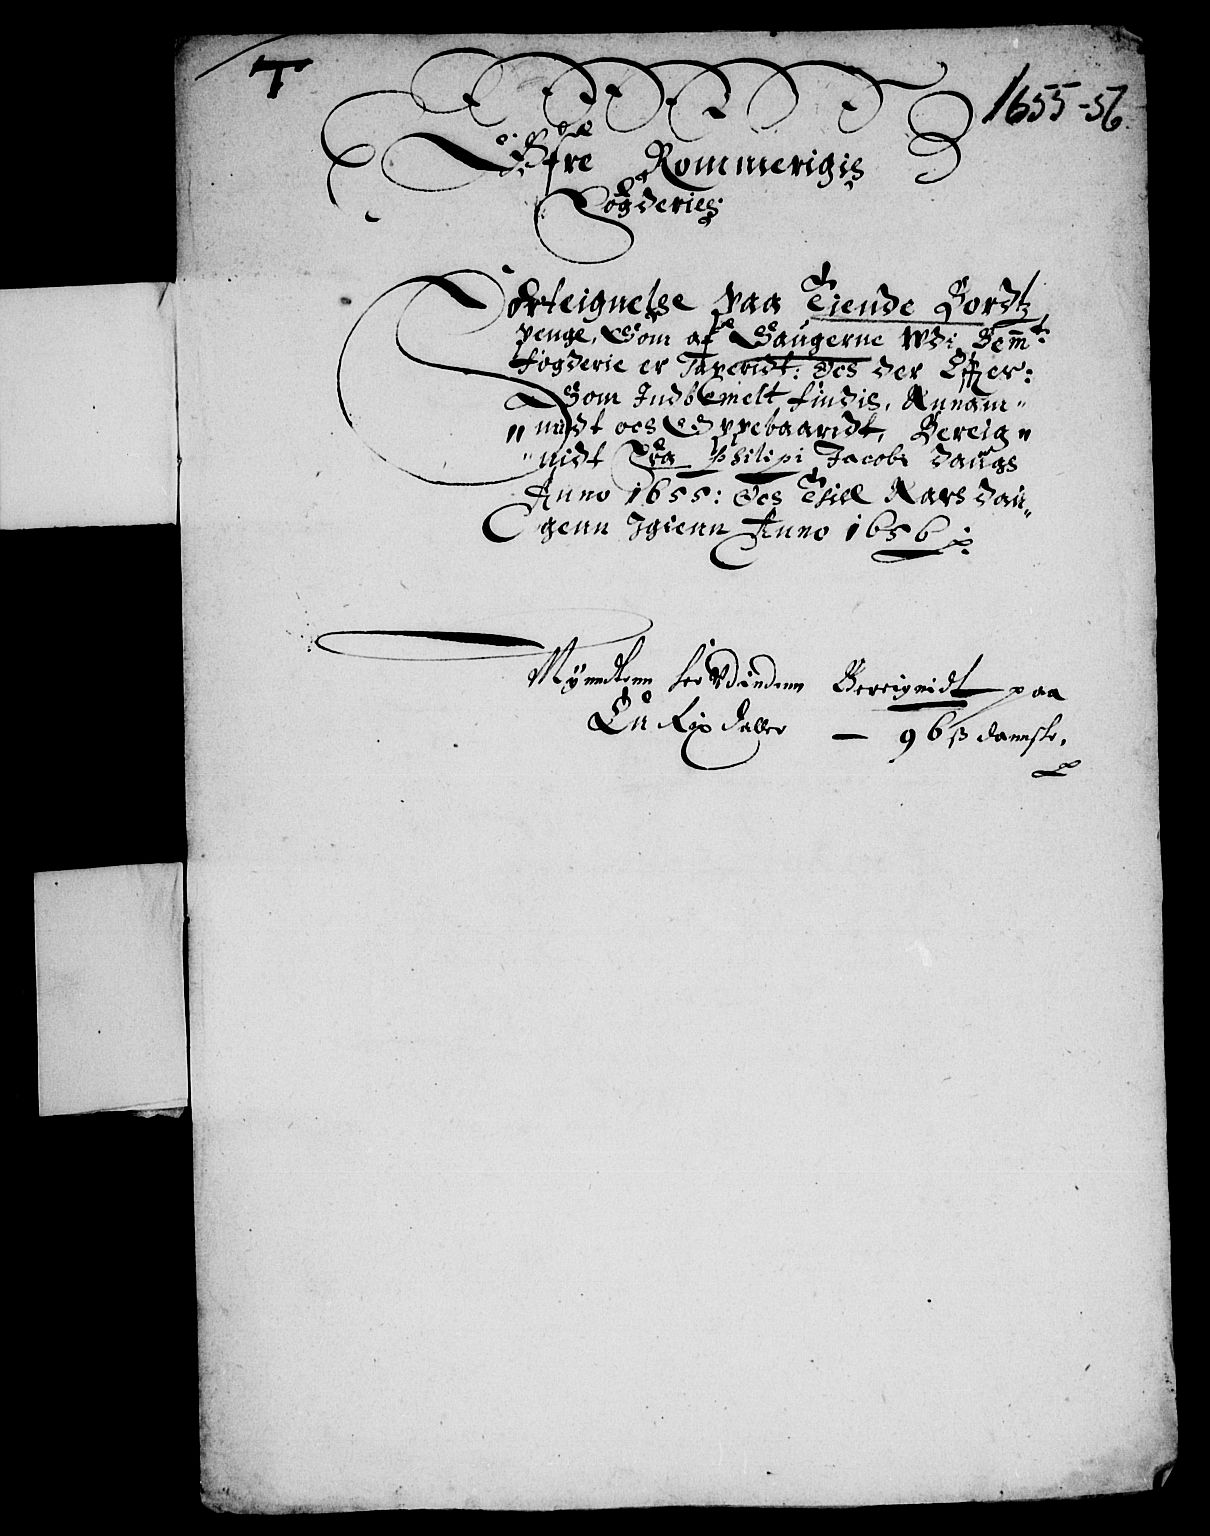 T
1655-56.
Øffre Rommerigis
Fogderies
Forteignelse paa Tiende Bordtz
penge, Som af Saugerne Wdi Bemt:
fogderie er Taxeridt: Oes der Effter:
Som Indbemelt findis, Annam-
midt oes Oppebaaridt, Bereig-
nidt Fra Philipi Jacobi Daugs
Anno 1655: Oes Thill Aars Dau-
genn Igienn Anno 1656:
Mÿnndtenn her Vdindenn Bereignidt paa
En Rix daller — 96 ß danske.